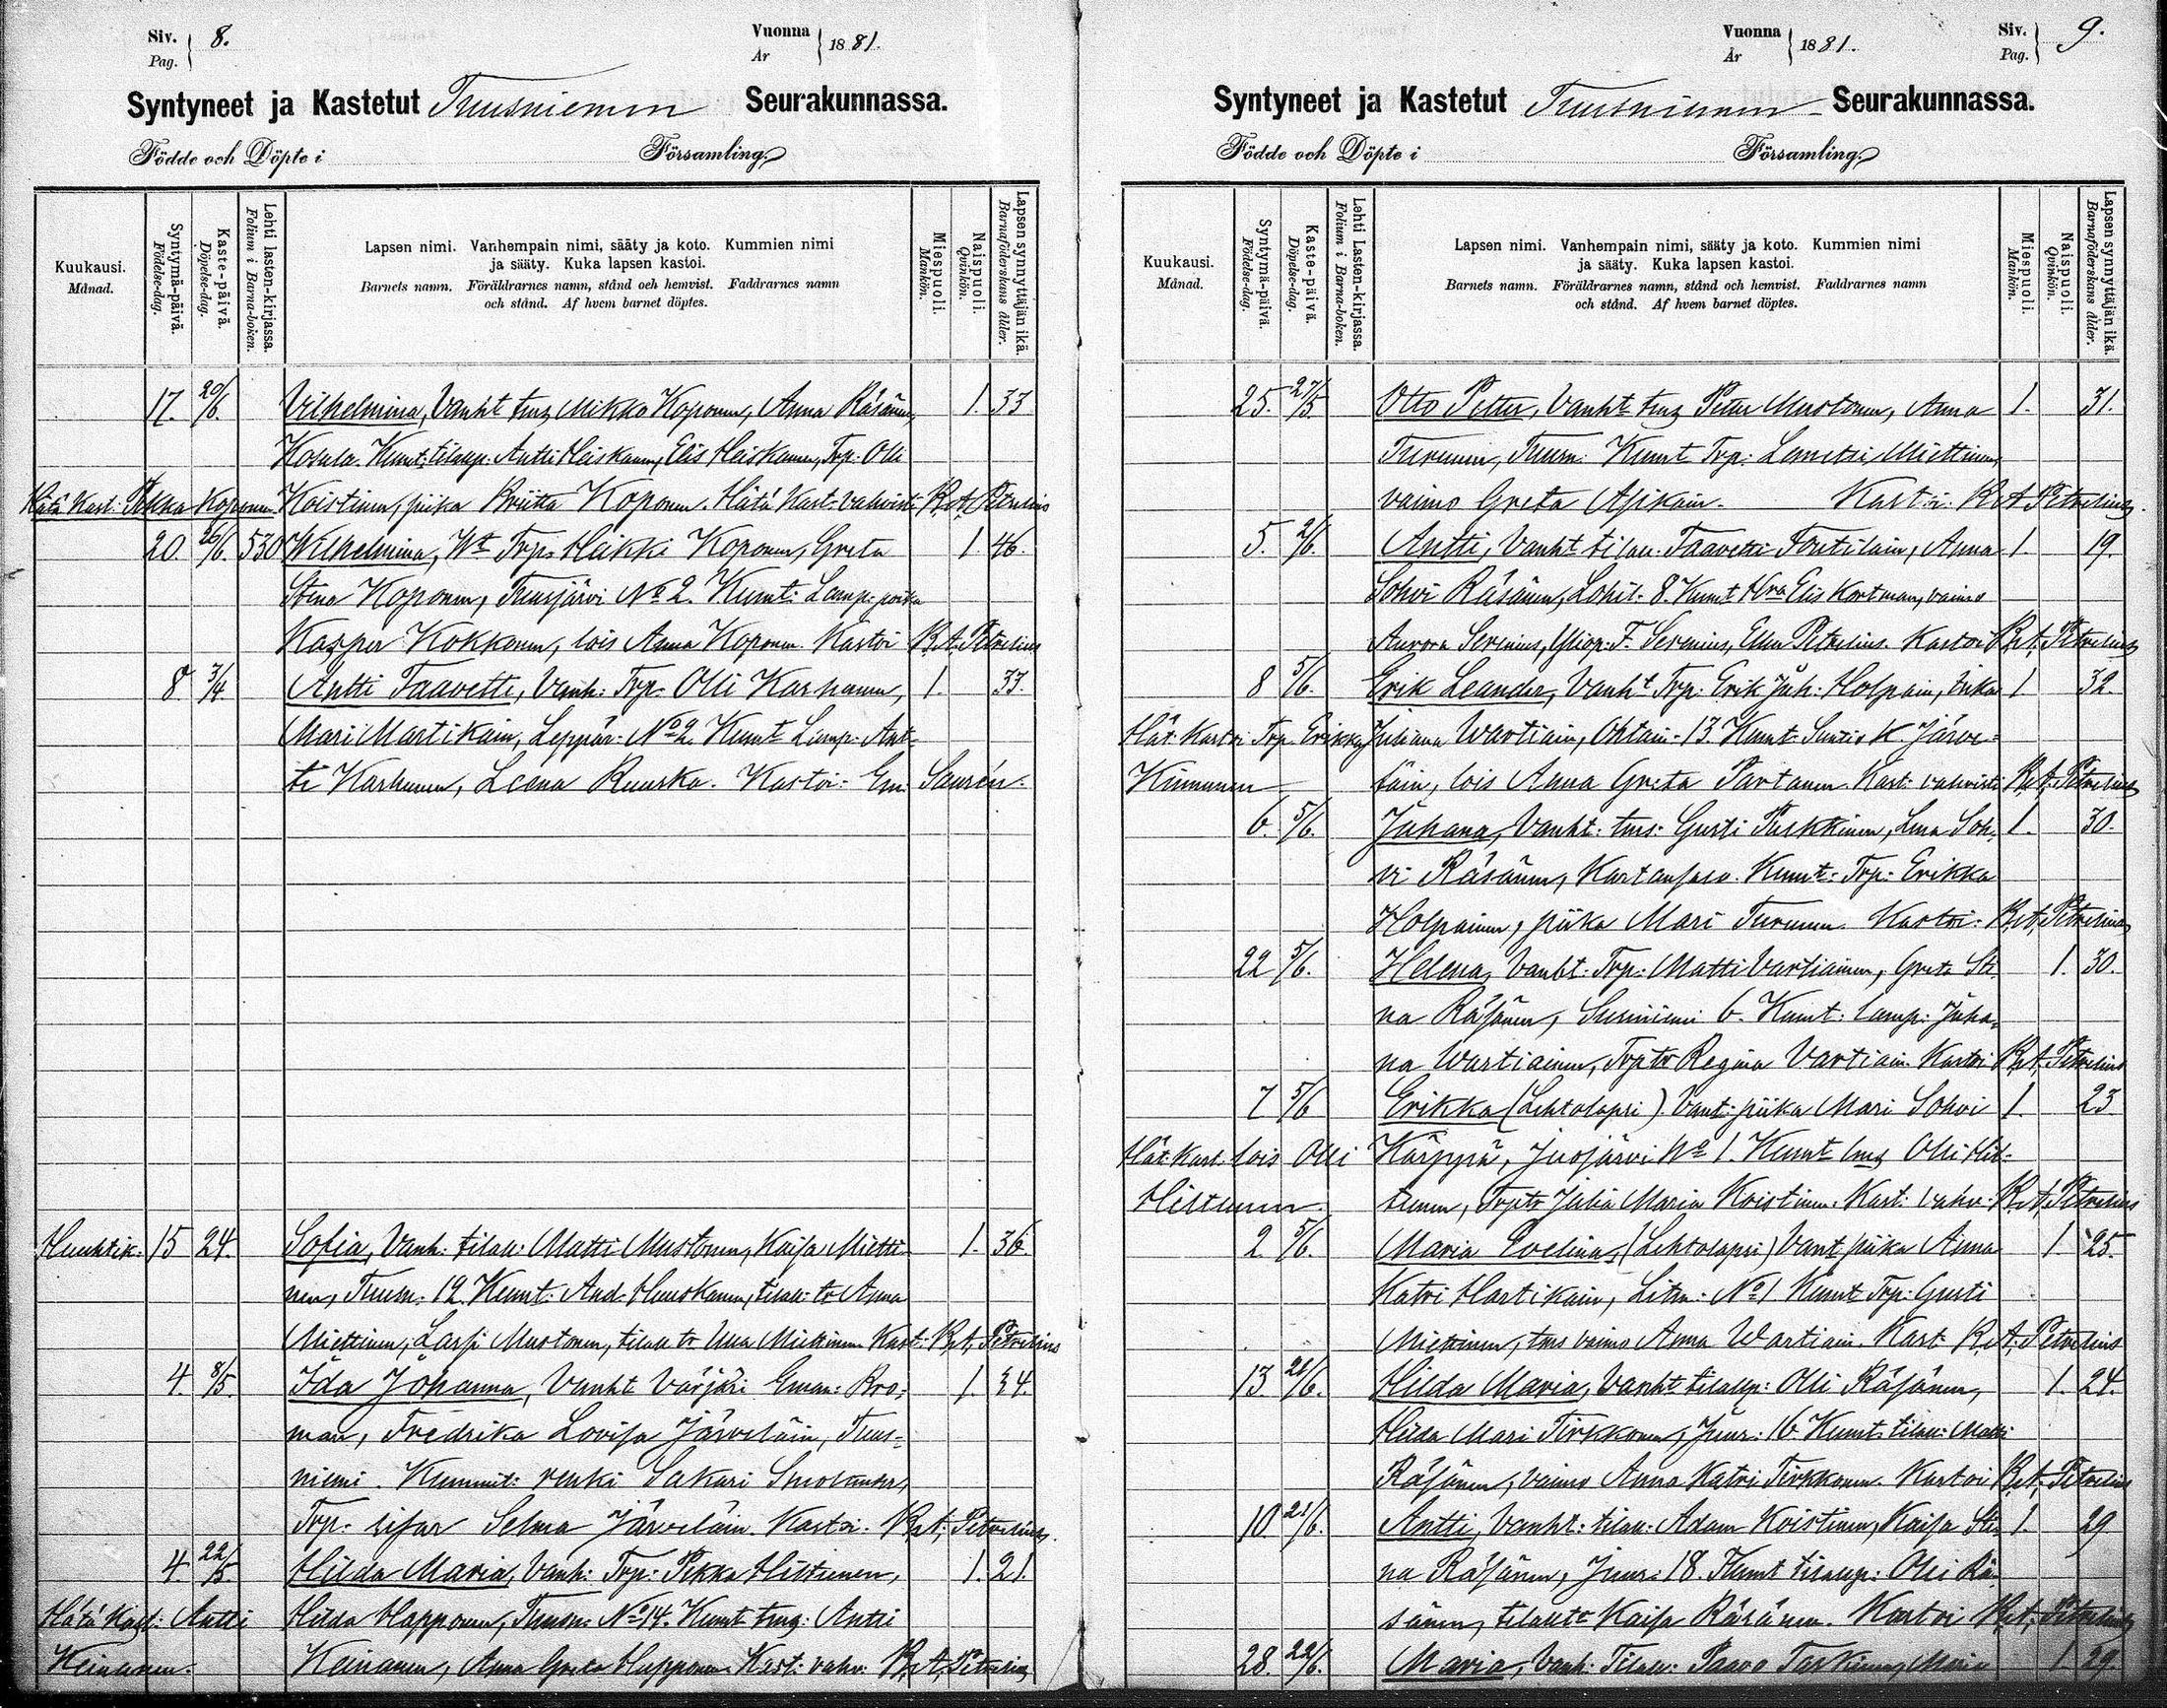 Siv. 8. Vuonna 1881.
Pag. År
Syntyneet ja Kastetut Tuusniemen Seurakunnassa.
Födde och Döpte i Församling.
Kuukausi. Månad.
Syntymä-päivä. Födelse-dag.
Kaste-päivä. Döpelse-dag.
Lehti lasten-kirjassa. Folium i Barna-boken.
Lapsen nimi. Vanhempain nimi, sääty ja koto. Kummien nimi
ja sääty. Kuka lapsen kastoi.
Barnets namn. Föräldrarnes namn, stånd och hemvist. Faddrarnes namn
och stånd. Af hvem barnet döptes.
Miespuoli. Mankön.
Naispuoli. Qvinkön.
Lapsen synnyttäjän ikä. Barnaföderskans ålder.
17. 20/6. Vilhelmina, Vanht tms Mikko Koponen, Anna Räsänen, 1. 33
Kosula. Kumt: tilallp: Antti Heiskanen, Elis Heiskanen, Trp: Olli
Hätä Kast: Pekka Koponen Koistinen, piika Briitta Koponen. Hätä Kast: vahvisti B.A. Petrelius
20. 26/6. 530 Wilhelmina, Wt Trp. Heikki Koponen, Greta 1. 46.
Stina Koponen, Tuusjärvi No 2. Kumt: Lamp: poika
Kasper Kokkonen, lois Anna Koponen. Kastoi B.A. Petrelius
8 3/4 Antti Taavetti, Vanh: Trp: Olli Karhunen, 1. 33.
Mari Martikain, Leppär: No 2. Kumt Lamp: Ant-
ti Karhunen, Leena Ruuska. Kastoi: Em: Saurén.
Huhtik: 15 24. Sofia, Vanh: tilall: Matti Mustonen, Kaisa Mietti- 1. 36.
nen, Tuusn: 12. Kumt: And. Huuskonen, tilall: tr Anna
Miettinen, Lassi Mustonen, tilall tr Miettinen Kast: B.A. Petrelius
4. 8/5. Ida Johanna, Vanht Värjäri Eman: Bro- 1. 34.
man, Fredrika Lovisa Järveläin, Tuus-
niemi. Kummit: renki Sakari Smolander,
Trp: sisar Selma Järveläin. Kastoi: B.A. Petrelius.
4. 22/5. Hilda Maria, Vanh: Trp: Pekka Hiltunen, 1. 21.
Hätä Kast: Antti Hilda Happonen, Tuusn: No 14. Kumt tmg: Antti
Keinanen. Keinanen, Anna Greta Happonen. Kast: vahv: B.A. Petrelius
Vuonna 1881. Siv. 9.
År Pag.
Syntyneet ja Kastetut Tuusniemen Seurakunnassa.
Födde och Döpte i Församling.
Kuukausi. Månad.
Syntymä-päivä. Födelse-dag.
Kaste-päivä. Döpelse-dag.
Lehti Lasten-kirjassa. Folium i Barna-boken.
Lapsen nimi. Vanhempain nimi, sääty ja koto. Kummien nimi
ja sääty. Kuka lapsen kastoi.
Barnets namn. Föräldrarnes namn, stånd och hemvist. Faddrarnes namn
och stånd. Af hvem barnet döptes.
Miespuoli. Mankön.
Naispuoli. Qvinkön.
Lapsen synnyttäjän ikä. Barnaföderskans ålder.
25. 27/5. Otto Petter, Vanht tmg Petter Mustonen, Anna 1. 31.
Turunen, Tuusn: Kumt Trp: Miettinen,
vaimo Greta Asikain. Kastoi: B.A. Petrelius.
5. 2/6. Antti, Vanht tilall: Taavetti Toutilain, Anna 1. 19.
Sohvi Räsänen, Lohil: 8. Kumt Hra Elis Kortman, vaimo
Aurora Serenius, Yliop: F. Serenius, Ellen Petrelius. Kastoi B.A. Petrelius
8 5/6. Erik Leander, Vanht Trp: Erik Juh: Holpain, 1 32.
Hät: Kastoi Trp Erikka Juliana Wartiain, Ohtain: 13. Kumt Suntio K. Järve-
Kinnunen läin, lois Anna Greta Partanen. Kast: vahvisti B.A. Petrelius
6. 5/6. Juhana, Vanht: tms: Gusti Pirkkinen, Lena Soh- 1. 30.
vi Räsänen, Kumt: Trp: Erikka
Holpainen, piika Mari Turunen. Kastoi: B.A. Petrelius
22 5/6. Helena, Vanht: Trp: Matti Vartiainen, Greta Sti- 1. 30.
na Räsänen, Susiniemi 6. Kumt: Lamp: Juha-
na Wartiainen, Trp tr Regina Vartiain. Kastoi B.A. Petrelius
7 5/6 Erikka (Lehtolapsi) Vant: piika Mari Sohvi 1. 23
Hät: Kast: lois Olli Kärppä, Juojärvi No 1. Kumt tms Olli Hil-
Hiltunen tunen, Trp tr Julia Maria Koistinen. Kast: vahv: B.A. Petrelius
2. 5/6. Maria Evelina, (Lehtolapsi) Vant piika Anna 1. 25.
Katri Hartikain, Litm: No 1 Kumt Trp: Gusti
Miettinen, tms vaimo Anna Wartiain. Kast B.A. Petrelius
13. 21/6. Hilda Maria, Vanht tilallp: Olli Räsänen, 1. 24.
Hilda Mari Tirkkonen, Juur: 16. Kumt: tilall: Matti
Räsänen, vaimo Anna Katri Tirkkonen. Kastoi B.A. Petrelius
10. 21/6. Antti, Vanht: tilall: Adam Koistinen, Kaisa Sti- 1. 29
na Räsänen, Juur: 18. Kumt tilallp: Olli Rä-
sänen, tilall tr Kaisa Räsänen. Kastoi B.A. Petrelius
28. 22/6. Maria, Vanh: Tilall: Paavo Taskinen, Maria 1. 29.